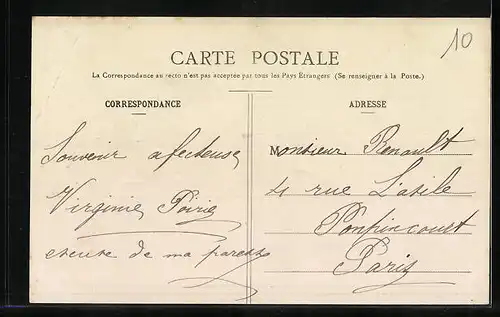 10
CARTE POSTALE
La Correspondance au recto n'est pas acceptée par tous les Pays Étrangers (Se renseigner à la Poste.)
CORRESPONDANCE
Souvenir afecteuse
Virginie Poirié
exeuse de ma paresse
ADRESSE
Monsieur Renault
4 rue L'asile
Poupincourt
Paris